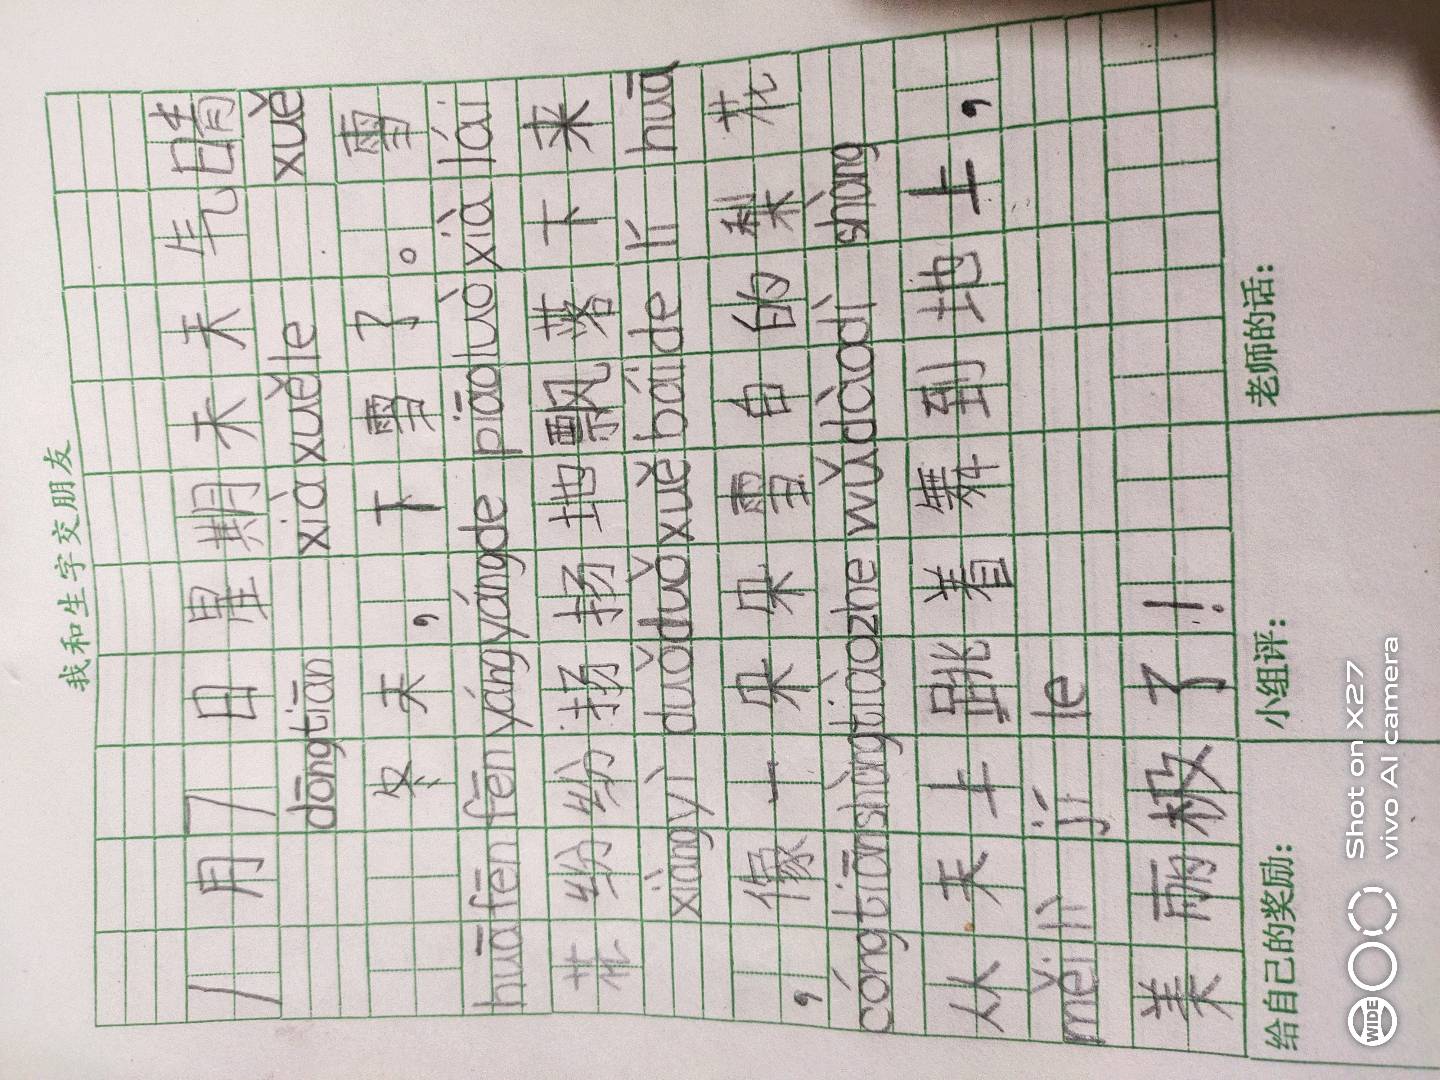 我和生字交朋友
1月7日星期天天气晴
dōngtiān xiàxuě le xuě
冬天，下雪了。雪
huāfēnfēnyángyángde piāoluòxiàlái
花纷纷扬扬地飘落下来
xiàngyì duǒduǒxuěbáide lí huā
，像一朵朵雪白的梨花
cóngtiānshàngtiàozhe wǔdàodì shàng
从天上跳着舞到地上，
měi lì jí le
美丽极了！
给自己的奖励： 小组评： 老师的话：
WIDE
Shot on X27
vivo AI camera